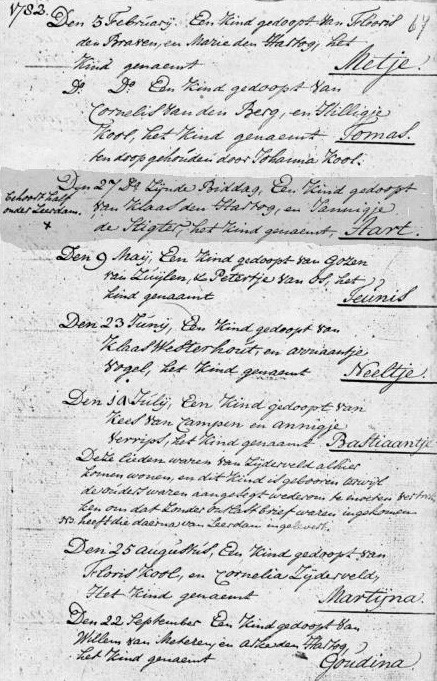 1783.
67
Den 5 February. Een Kind gedoopt van Floris
den Braven, en Marie den Hartog, het
Kind genaemt Metje.
Do. Do. Een Kind gedoopt van
Cornelis van den Berg, en Hilligje
Kool, het Kind genaemt Tomas.
ten doop gehouden door Johanna Kool.
Den 27 Do. Zijnde Biddag, Een Kind gedoopt
behoort half
onder Leerdam.
x
van Klaas den Hartog, en Jannigje
de Stigter, het Kind genaemt Aart.
Den 9 Maij, Een Kind gedoopt van Gozen
van Zuijlen, & Petertje van Os, het
kind genaamt Teunis
Den 23 Juny, Een Kind gedoopt van
Klaas Westerhout, en Arriaantje
Vogel, het Kind genaemt Neeltje.
Den July, Een Kind gedoopt van
Kees van Campen en Annigje
Verrips, het Kind genaamt Bastiaantje
Deze lieden waren van Zijderveld alhier
komen wonen, en dit Kind is gebooren terwijl
de ouders waren aangelegt wederom te moeten vertrek
ken om dat zonder ontlast brief waren ingekomen
heeft die daerna van Leerdam ingelevert.
Den 25 Augustus, Een Kind gedoopt van
Floris Kool, en Cornelia Zijderveld,
Het Kind genaemt Martijna.
Den 22 September Een Kind gedoopt van
Willem van Meteren, en den Hartog,
het Kind genaemt Goudina.